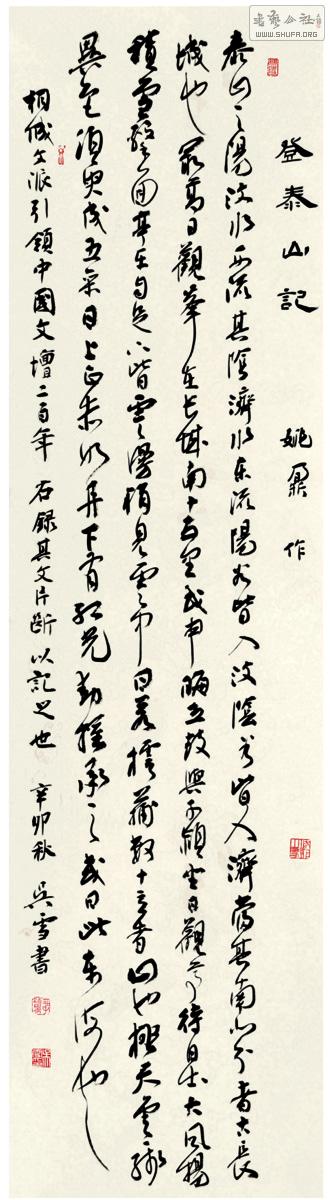 書藝公社
WWW.SHUFA.ORG
登泰山記 姚鼐作
泰山之陽汶水西流其陰濟水東流陽谷皆入汶陰谷皆入濟當其南北分者古長
城也最高日觀峯在長城南十五里戊申晦五鼓與子潁坐日觀亭待日出大風揚
積雪擊面亭東自足下皆雲漫稍見雲中白若樗蒱數十立者山也極天雲一線
異色須臾成五采日上正赤如丹下有紅光動搖承之或曰此東海也
桐城文派引領中國文壇二百年 右錄其文片斷以記之也 辛卯秋 吳雪書